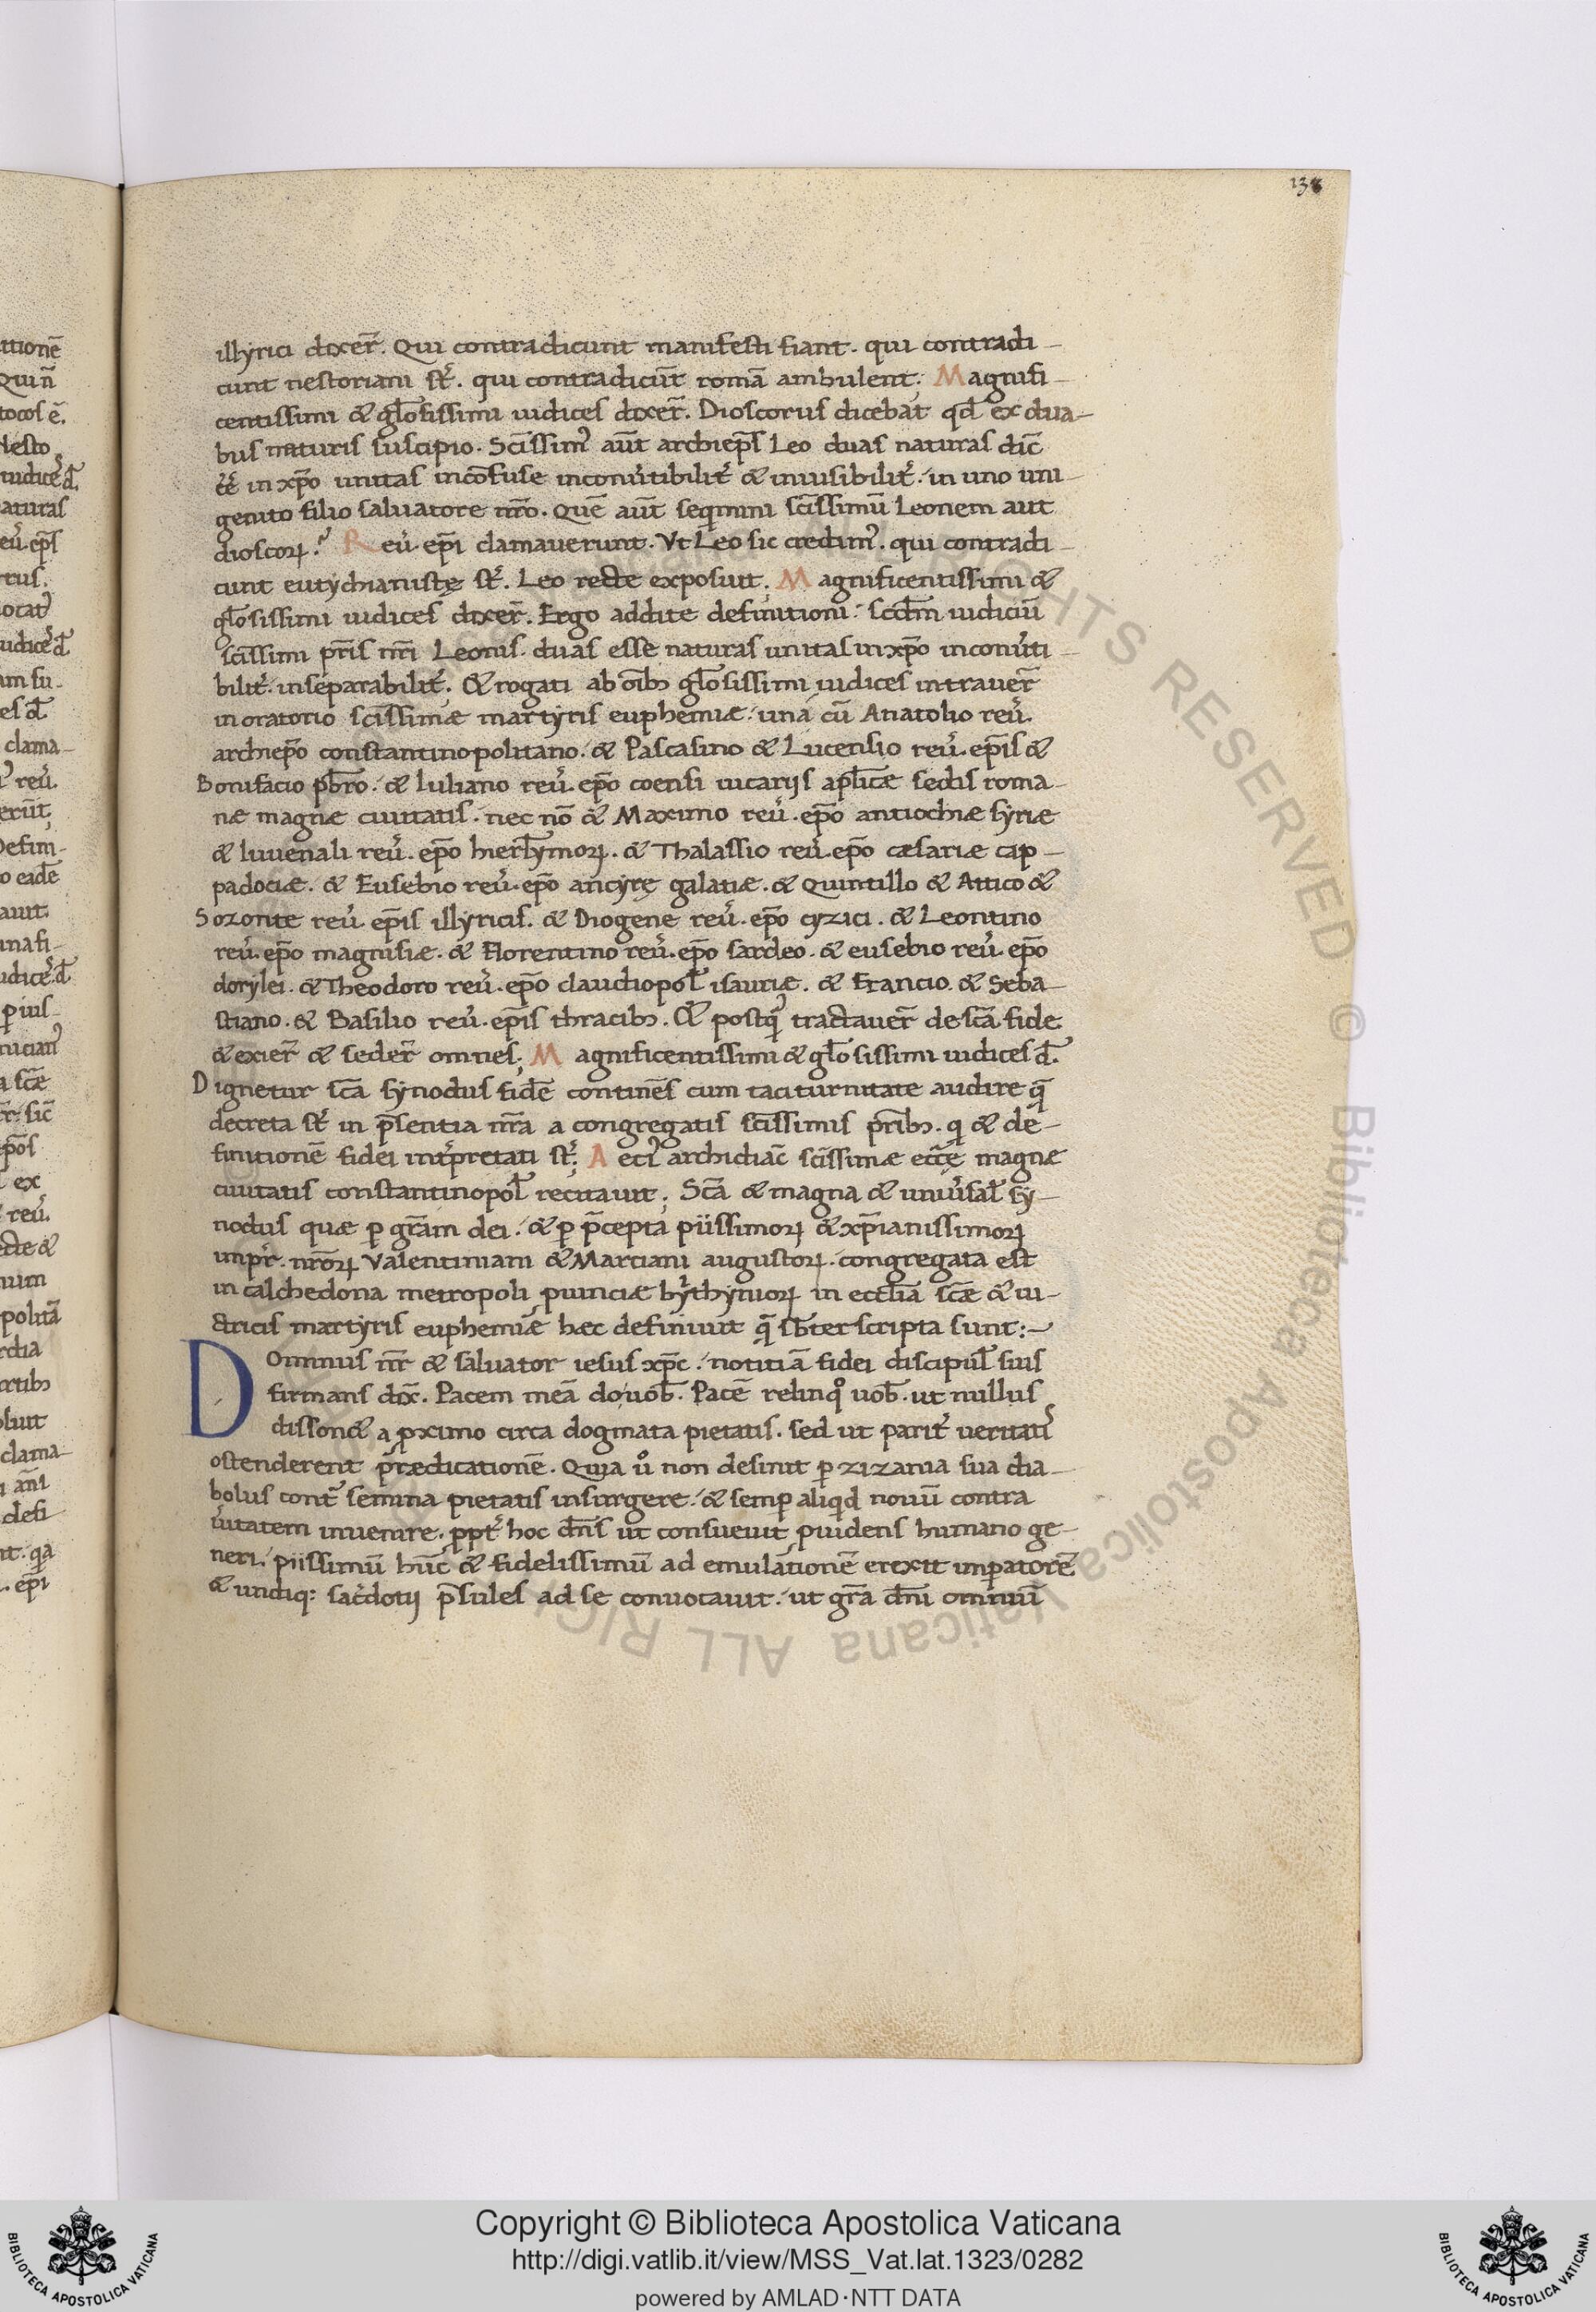 138
illyrici dixer̄. Qui contradicunt manifesti fiant. qui contradi-
cunt nestoriani st̄. qui contradicūt romā ambulent; Magnifi-
centissimi & gl̄osissimi iudices dixer̄. Dioscorus dicebat qd̄ ex dua-
bus naturis suscipio. Sc̄issim᾽ aūt archiep̄s Leo duas naturas dic̄
ēē in xp̄o unitas incōfuse inconu̓tibilit̓ & inuisibilit̓. in uno uni-
genito filio saluatore nr̄o. Quē aūt seqmini sc̄issimū Leonem aut
dioscoꝝ? Reu̓. ep̄i clamauerunt. Vt Leo sic credim᾽. qui contradi-
cunt eutychianistę st̄. Leo recte exposuit; Magnificentissimi &
gl̄osissimi iudices dixer̄. Ergo addite definitioni. scd̄m iudiciū
sc̄issimi pr̄is nr̄i Leonis. duas esse naturas unitas in xp̄o inconu̓ti-
bilit̓. inseparabilit̓. & rogati ab oīb; gl̄osissimi iudices intrauer̄
in oratorio sc̄issimæ martyris euphemiæ. una cū Anatolio reu̓.
archiep̄o constantinopolitano. & Pascasino & Lucensio reu̓. ep̄is &
Bonifacio pb̄ro. & Iuliano reu̓. ep̄o coensi uicarijs apl̄icæ sedis roma-
næ magnæ ciuitatis. nec nō & Maximo reu̓. ep̄o antiochiæ syriæ
& Iuuenali reu̓. ep̄o hierl̄ymoꝝ. & Thalassio reu̓. ep̄o cæsariæ cap-
padociæ. & Eusebio reu̓. ep̄o ancyrę galatiæ. & Quintillo & Attico &
Sozonte reu̓. ep̄is illyricis. & Diogene reu̓. ep̄o cyzici. & Leontino
reu̓. ep̄o magnisiæ. & Florentino reu̓. ep̄o sardeo. & eusebio reu̓. ep̄o
dorylei. & Theodoro reu̓. ep̄o claudiopol̄ isauriæ. & Francio. & Seba-
stiano. & Basilio reu̓. ep̄is thracib;. & postq̄ tractauer̄ de sc̄a fide
& exier̄ & seder̄ omnes; Magnificentissimi & gl̄osissimi iudices d̄.
Dignetur sc̄a synodus fidē continēs cum taciturnitate audire q̄
decreta st̄ in p̄sentia nr̄a a congregatis sc̄issimis pr̄ib;. q & de-
finitionē fidei int̓pretati st̄; Aeti᾽ archidiac̄ sc̄issimæ ecc̄ę magnæ
ciuitatis constantinopol̄ recitauit; Sc̄a & magna & uniu̓sal̄ sy-
nodus quæ ꝑ gr̄am dei. & ꝑ p̄cepta piissimoꝝ & xp̄ianissimoꝝ
impr̄. nr̄oꝝ Valentiniani & Marciani augustoꝝ. congregata est
in calchedona metropoli ꝓuinciæ bythynioꝝ in eccl̄ia sc̄æ & ui-
ctricis martyris euphemiæ hæc definiuit q̄ sb̄ter scripta sunt:
Dominus nr̄ & saluator iesus xp̄c. notitiā fidei discipul̄ suis
firmans dix̄. Pacem meā do uob̄. Pacē relinqo uob̄. ut nullus
disson& a ꝓximo circa dogmata pietatis. sed ut parit̓ ueritatis
ostenderent prædicationē. Quia uo non desinit ꝑ zizania sua dia-
bolus cont̄ semina pietatis insurgere. & semꝑ aliqid nouū contra
u̓itatem inuenire. ꝓpt̓ hoc dn̄s ut consueuit ꝓuidens humano ge-
neri. piissimū hūc & fidelissimū ad emulationē erexit imꝑatorē.
& undiq: sac̓dotij p̄sules ad se conuocauit. ut gr̄a dn̄i omniū
Copyright © Biblioteca Apostolica Vaticana
http://digi.vatlib.it/view/MSS_Vat.lat.1323/0282
powered by AMLAD·NTT DATA
BIBLIOTECA APOSTOLICA VATICANA
BIBLIOTECA APOSTOLICA VATICANA
ALL RIGHTS RESERVED © Biblioteca Apostolica Vaticana ALL RIGHTS